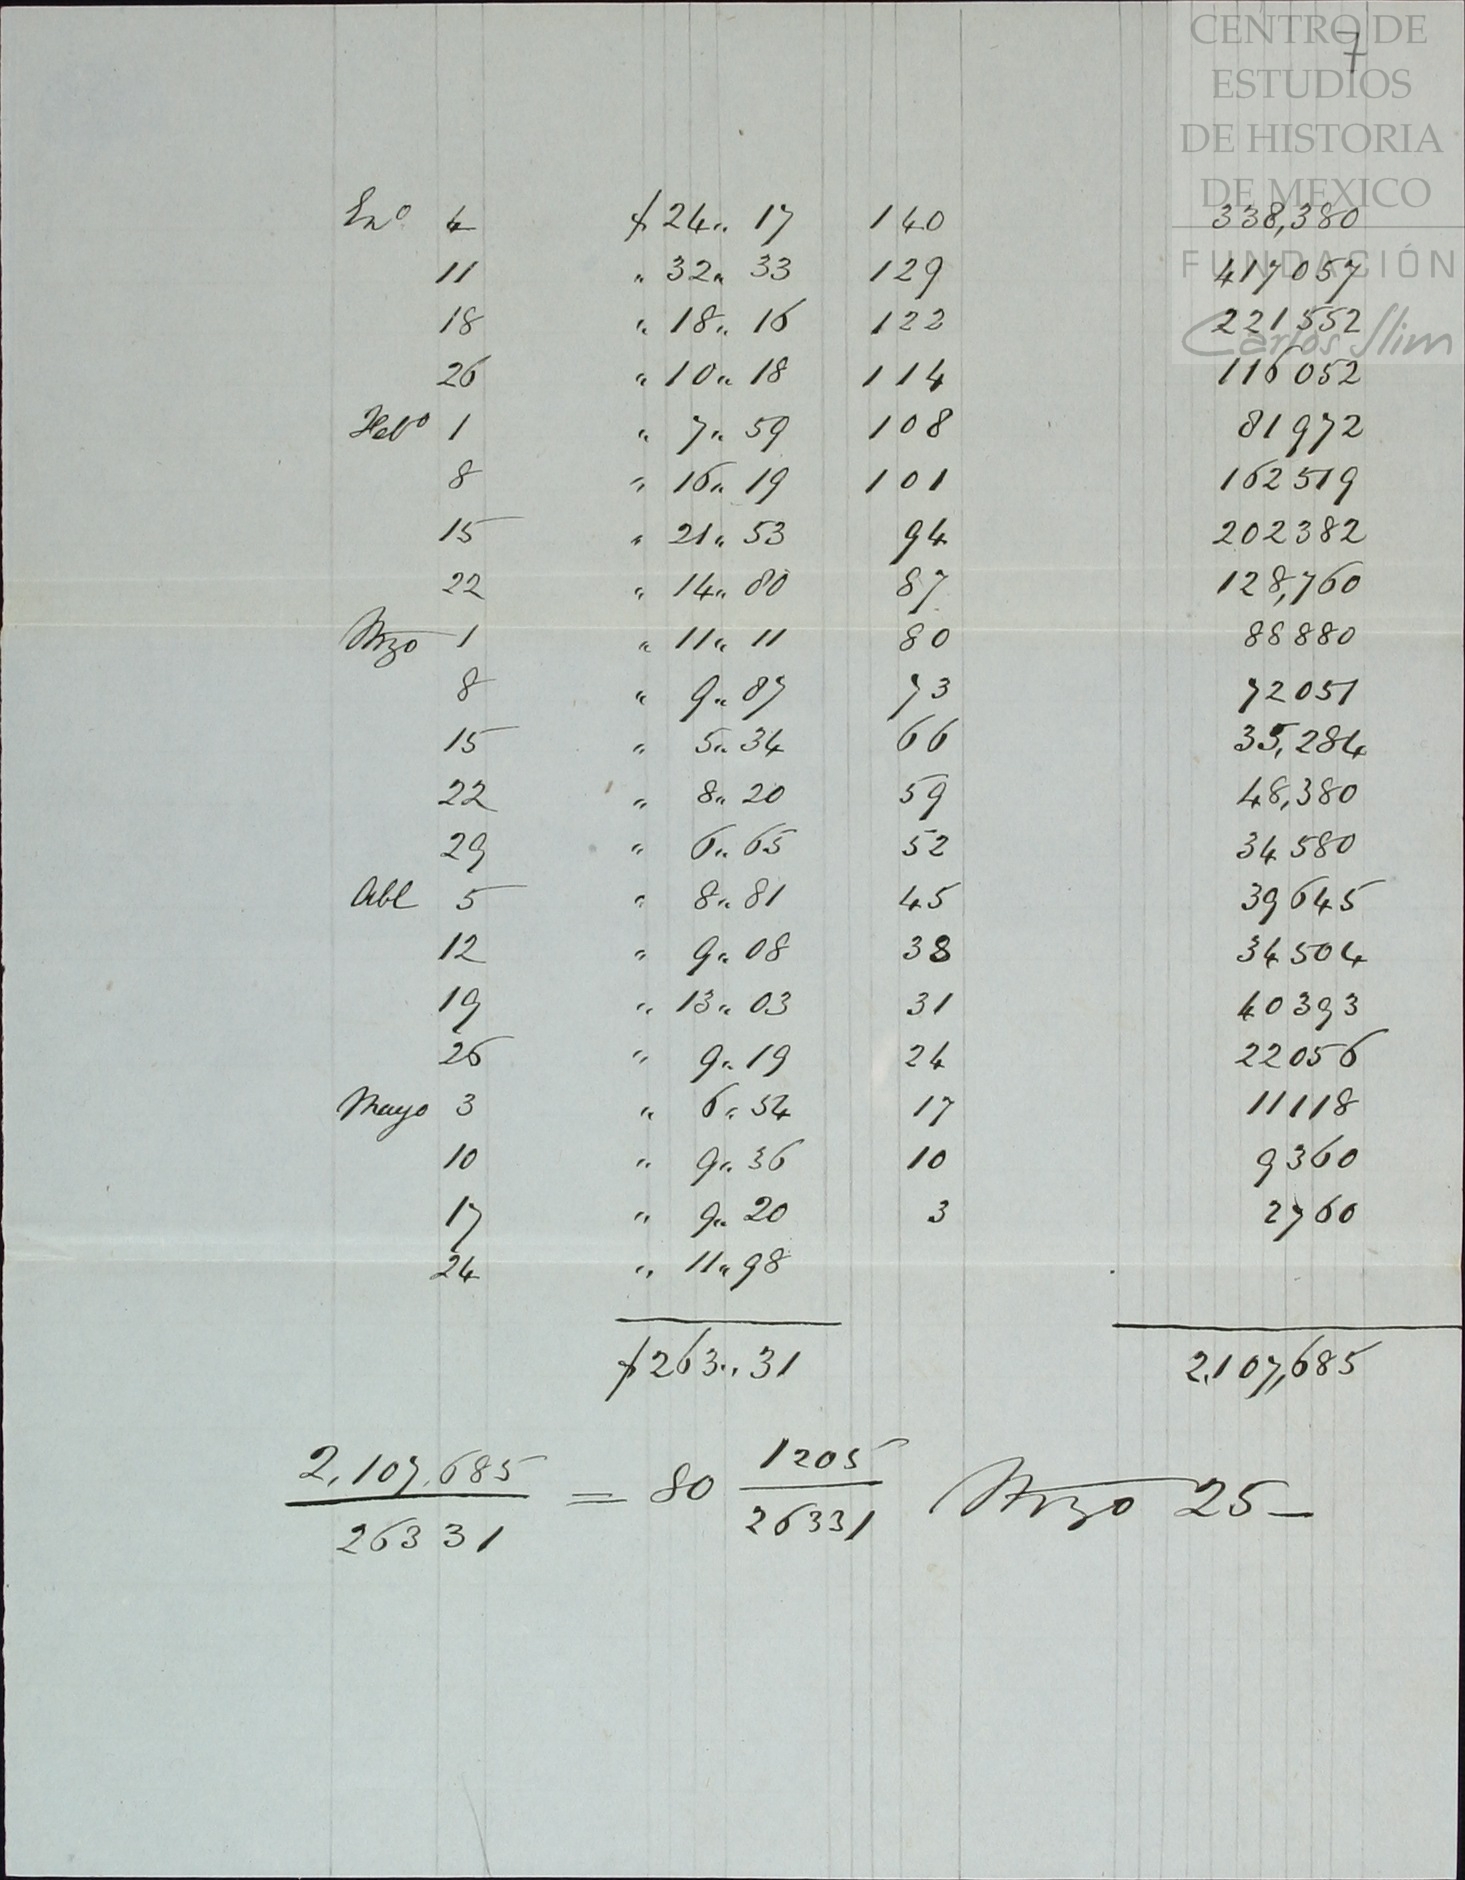 CENTRO DE
ESTUDIOS
DE HISTORIA
DE MEXICO
FUNDACIÓN
Carlos Slim
7
Eno 4 $ 24.. 17 140 338,380
11 " 32.. 33 129 417057
18 " 18.. 16 122 221552
26 " 10.. 18 114 116052
Febo 1 " 7.. 59 108 81972
8 " 16.. 19 101 162519
15 " 21.. 53 94 202382
22 " 14.. 80 87 128,760
Mzo 1 " 11.. 11 80 88880
8 " 9.. 87 73 72051
15 " 5.. 34 66 35,284
22 " 8.. 20 59 48,380
29 " 6.. 65 52 34580
Abl 5 " 8.. 81 45 39645
12 " 9.. 08 38 34504
19 " 13.. 03 31 40393
26 " 9.. 19 24 22056
Mayo 3 " 6.. 54 17 11118
10 " 9.. 36 10 9360
17 " 9.. 20 3 2760
24 " 11.. 98
$ 263.. 31 2,107,685
2,107,685 / 26331 = 80 1205 / 26331 Mzo 25 –